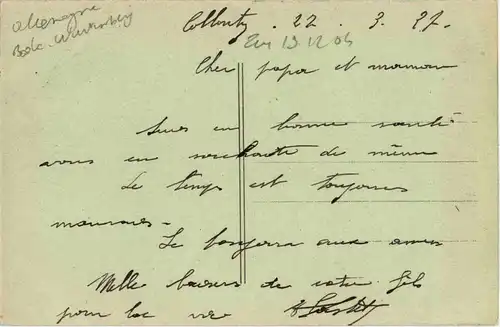 Allemagne
Bade. Wurtemberg
22 . 3 . 27.
Eur 13 12 04
Cher papa et maman
Suis en bonne santé
vous en souhaite de même
Le temps est toujours
mauvais -
Le bonjour aux amis
Mille baisers de votre fils
pour la vie